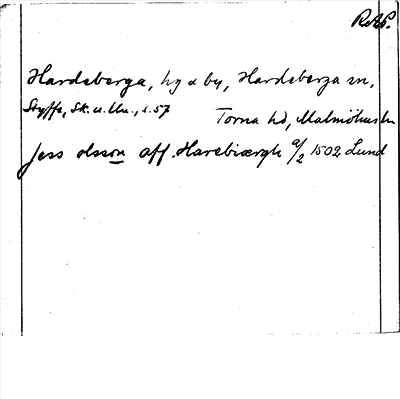 RAP.
Hardeberga, hg o by, Hardeberga sn,
Styffe, Sk. u. Un., s. 57 Torna hd, Malmöhus ln
Jess olsson aff. Harebiærgh 9/2 1502 Lund